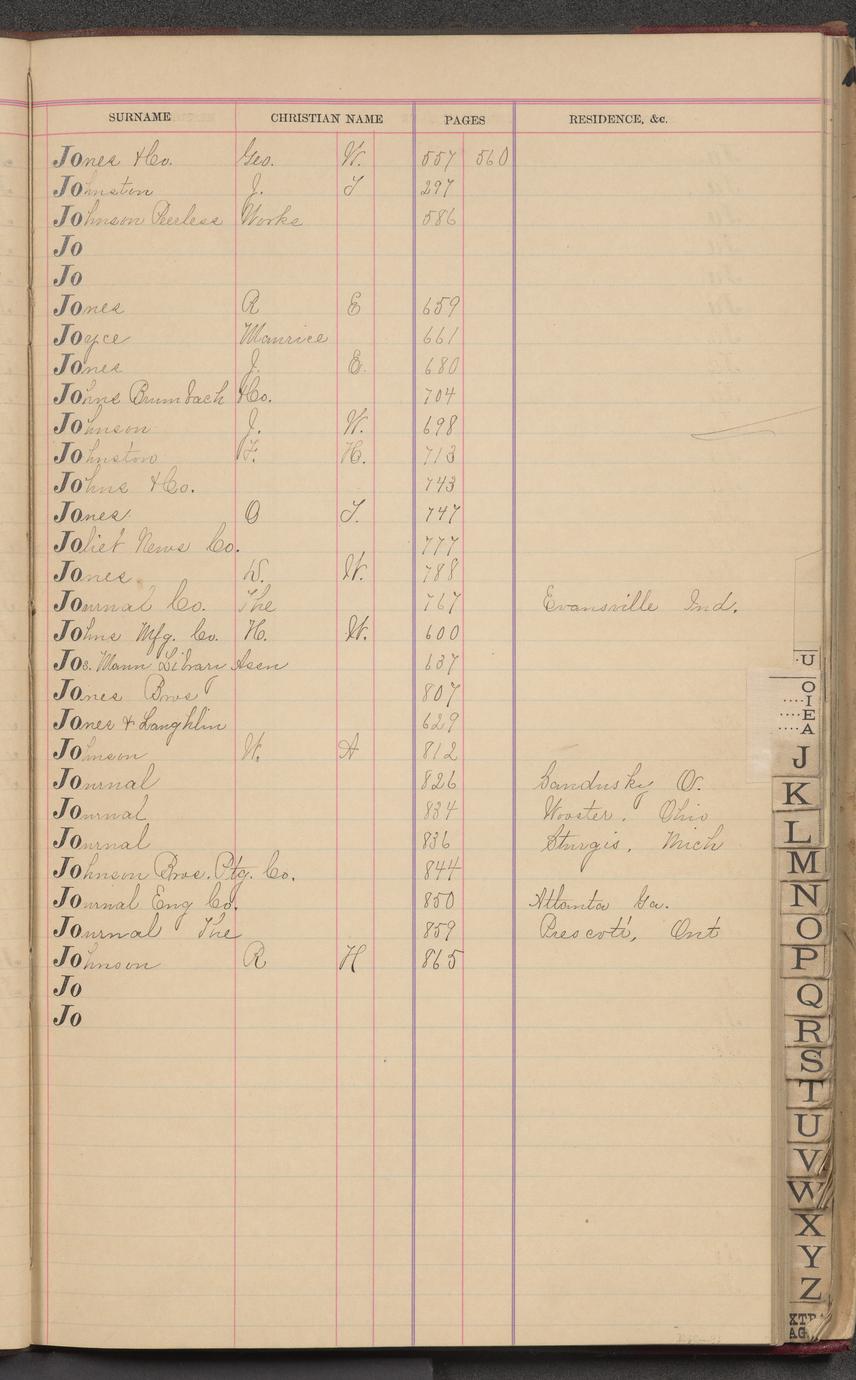 SURNAME CHRISTIAN NAME PAGES RESIDENCE, &c.
Jones & Co. Geo. W. 557 560
Johnston J. T 297
Johnson Peerless Works 586
Jo
Jo
Jones R E 659
Joyce Maurice 661
Jones J. E. 680
Johns Brumbach & Co. 704
Johnson J. W. 698
Johnston F. H. 713
Johns & Co. 743
Jones O T. 747
Joliet News Co. 777
Jones W. 788
Journal Co. The 767 Evansville Ind.
Johns Mfg. Co. H. W. 600
Jos. Mann Library Assn 637
Jones Bros 807
Jones & Laughlin 629
Johnson W. A 812
Journal 826 Sandusky O.
Journal 834 Wooster, Ohio
Journal 836 Sturgis, Mich
Johnson Bros. Ptg. Co. 844
Journal Eng Co. 850 Atlanta Ga.
Journal The 859 Prescott, Ont
Johnson R H 865
Jo
Jo
U
O
I
E
A
J
K
L
M
N
O
P
Q
R
S
T
U
V
W
X
Y
Z